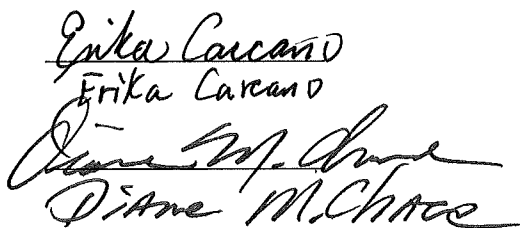 Erika Carcaño
Erika Carcano
Diane M.
Diane M. Chace